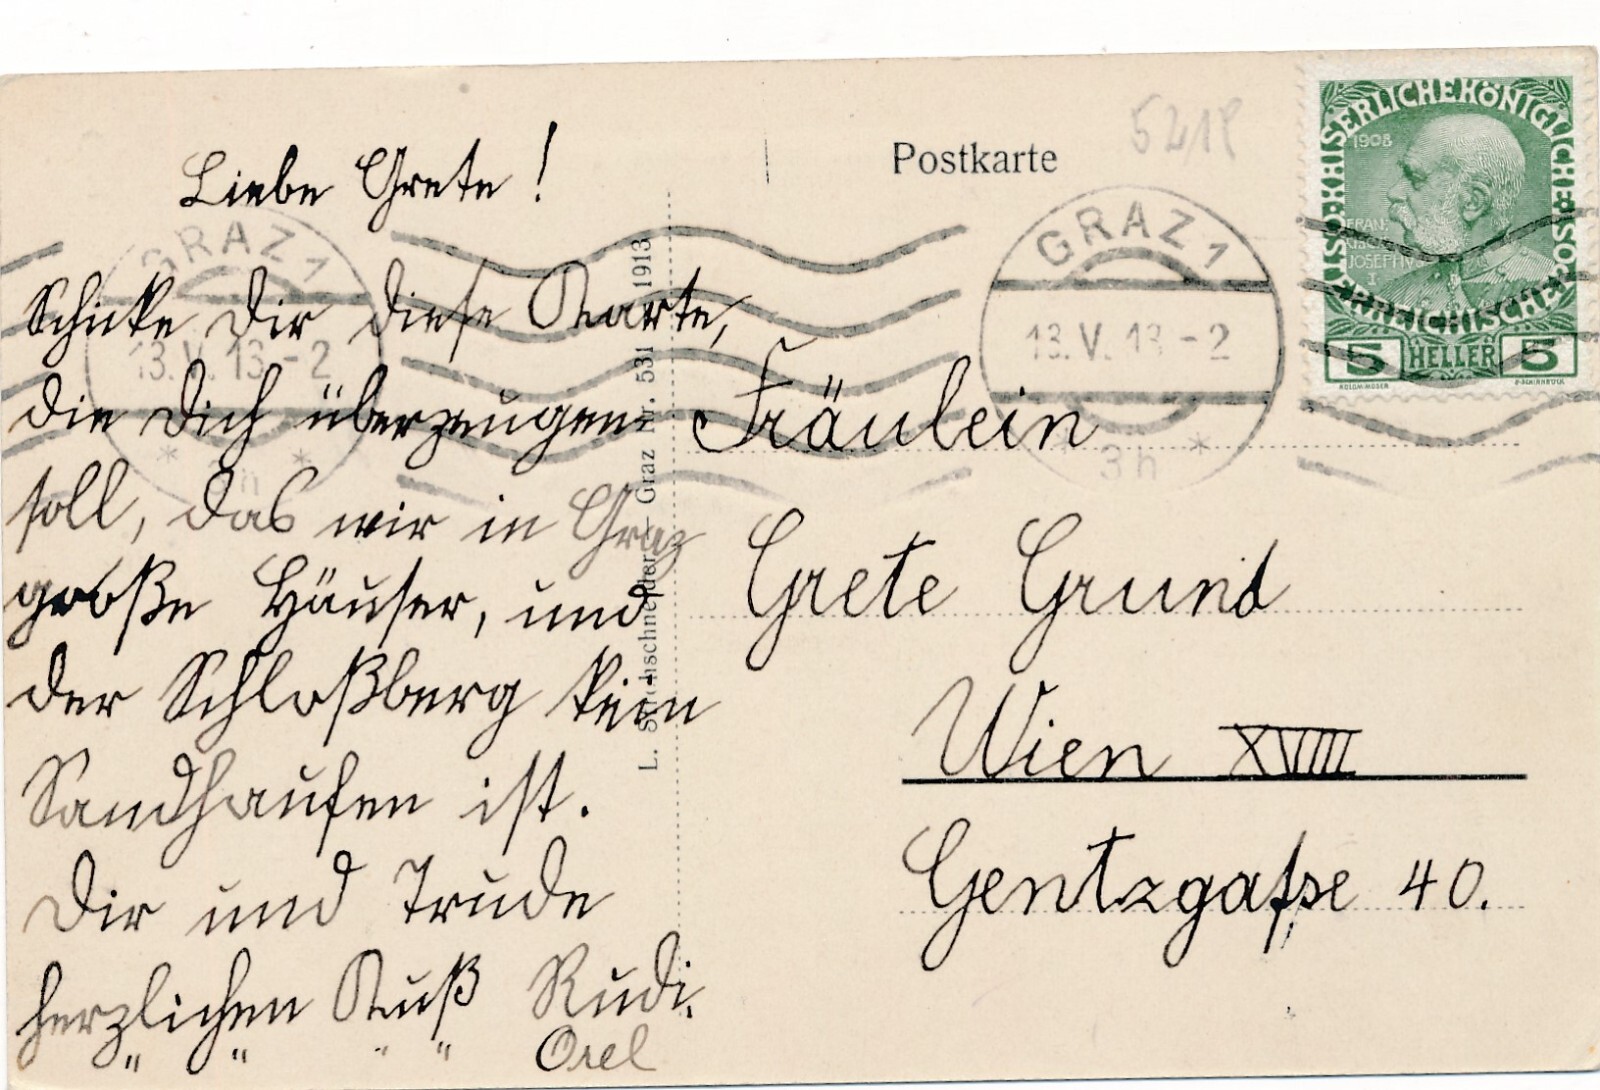 Postkarte
5218
KAISERLICHE KÖNIGLICHE
ÖSTERREICHISCHE
1908
FRAN
JOSEPH I
5 HELLER 5
GRAZ 1
13. V. 13 - 2
3h *
GRAZ 1
13. V. 13 - 2
* *
Liebe Grete!
Schicke Dir diese Karte,
die Dich überzeugen
soll, das wir in Graz
große Häuser, und
der Schloßberg kein
Sandhaufen ist.
Dir und Trude
herzlichen Kuß Rudi.
" " " " Orel
L. Strohschneider, Graz Nr. 531 1913
Fräulein
Grete Grund
Wien XVIII
Gentzgasse 40.